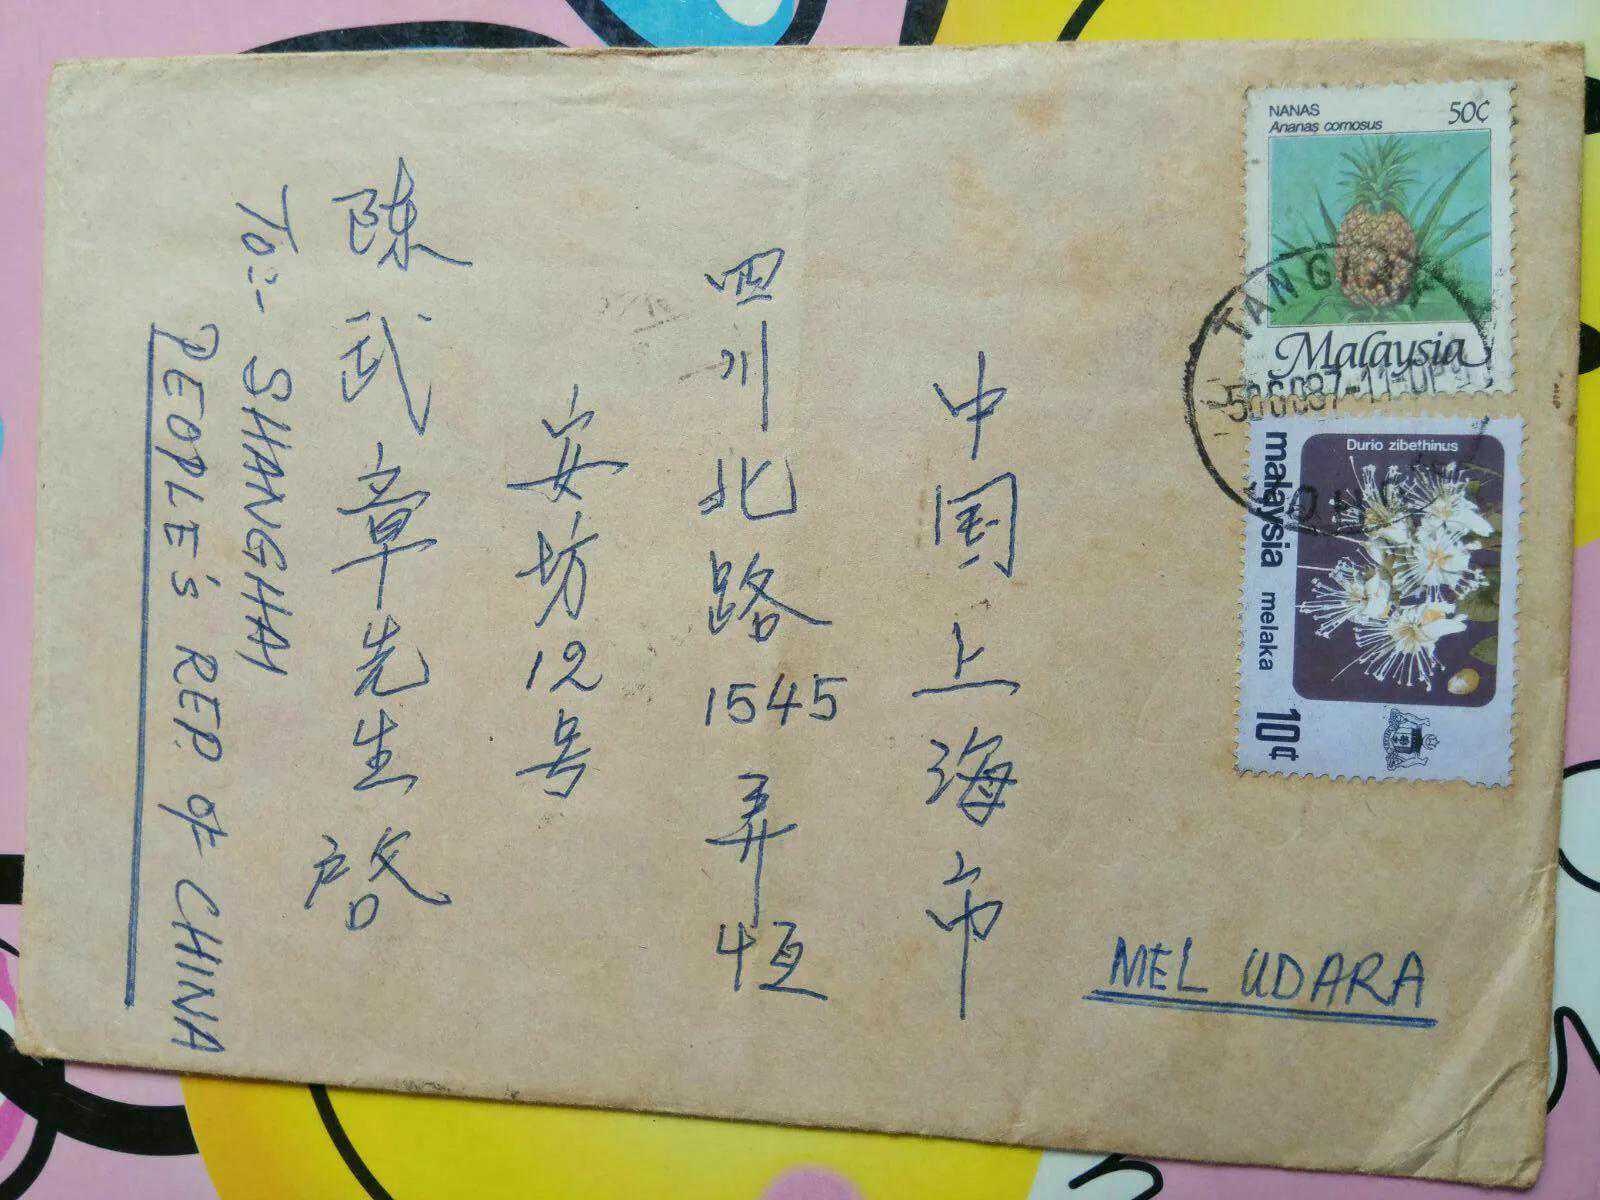 NANAS
Ananas comosus
50¢
Malaysia
TANG
Durio zibethinus
malaysia melaka
10¢
MEL UDARA
中国上海市
四川北路1545弄恒
安坊12号
陈武章先生启
To:- SHANGHAI
PEOPLE's REP. of CHINA